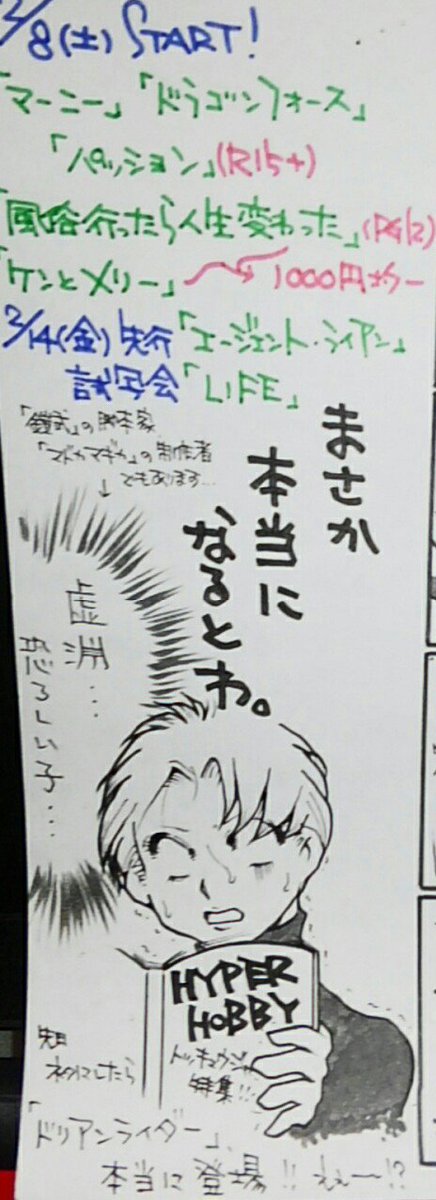 2/8(土) START!
「マーニー」「ドラゴンフォース」
「パッション」(R15+)
「風俗行ったら人生変わった」(PG12)
「ケンとメリー」→1000円均一
2/14(金)先行「エージェント・ライアン」
試写会「LIFE」
「鎧武」の脚本家
「マドカマギカ」の制作者
でもあります…
↓
まさか
本当に
なるとわ。
虚淵…
恐ろしい子…
HYPER
HOBBY
トッキュウジャー
特集!!
先日
ネタにしたら
「ドリアンライダー」
本当に登場!!えぇー!?